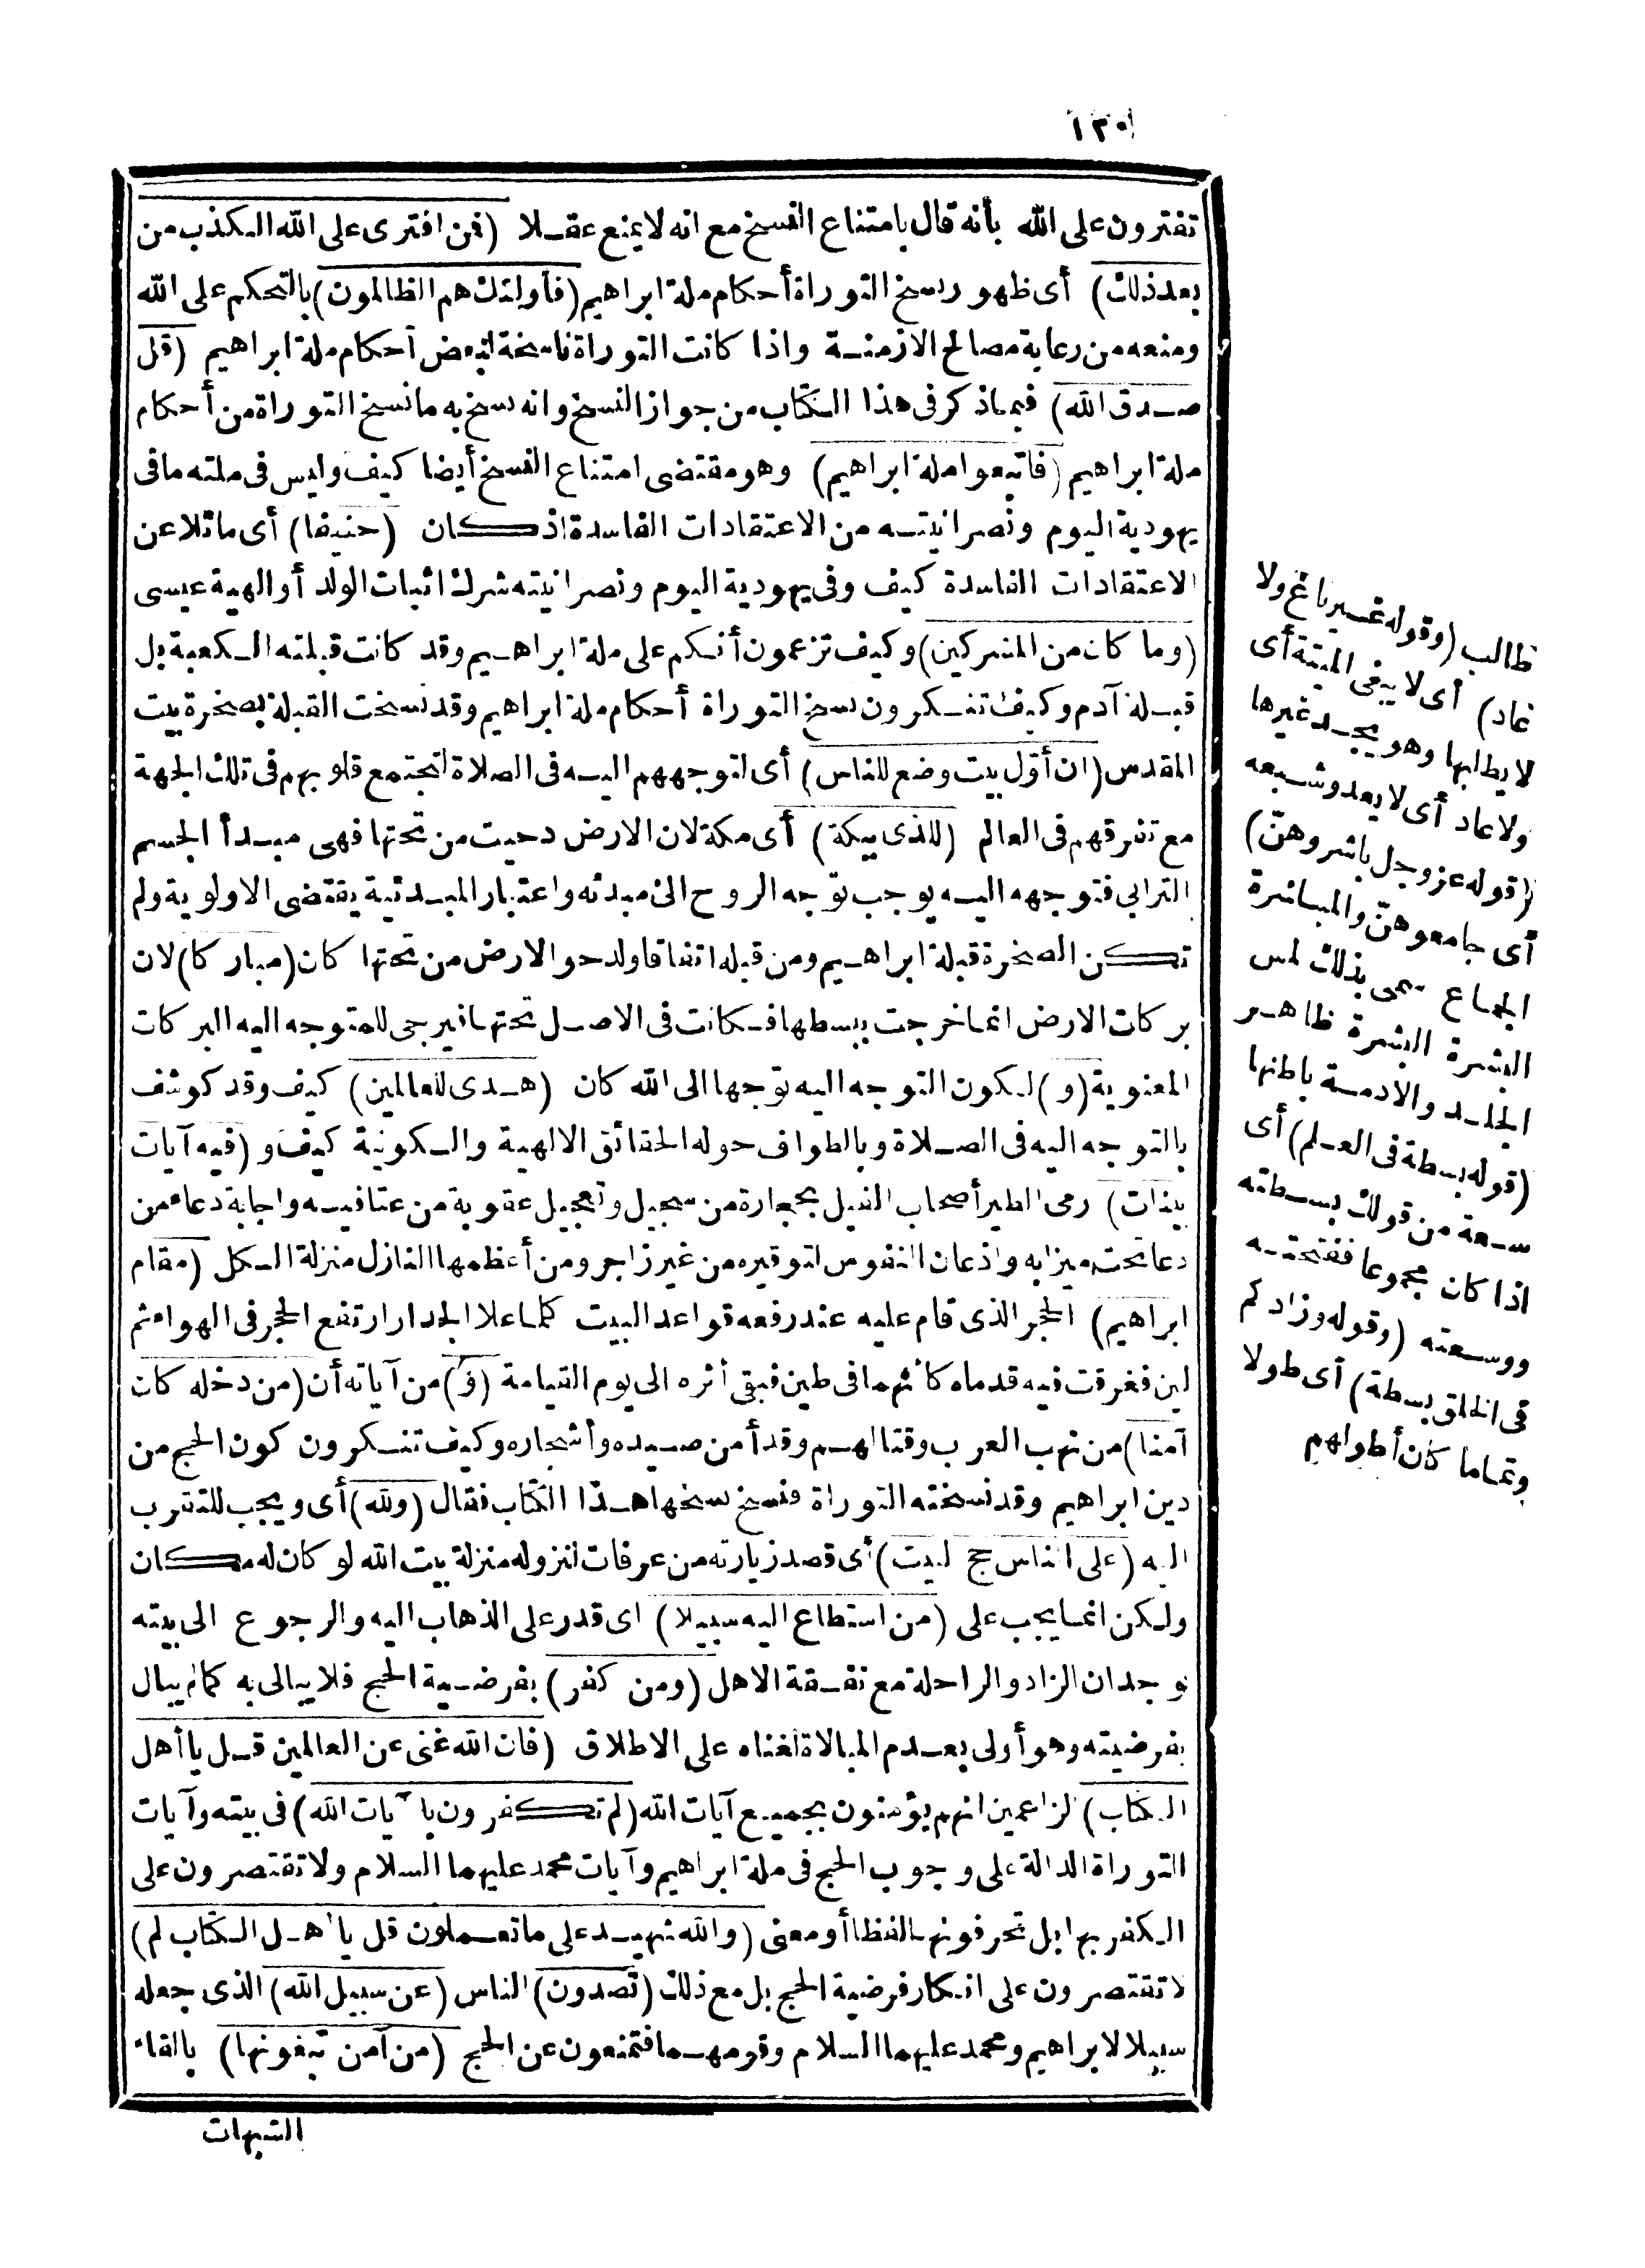 ١٢٠
تفترون على الله بأنه قال بامتناع النسخ مع انه لا يمنع عقلا (فمن افترى على الله الكذب من
بعد ذلك) أى ظهور نسخ التوراة أحكام ملة ابراهيم (فأولئك هم الظالمون) بالتحكم على الله
ومنعه من رعاية مصالح الازمنة واذا كانت التوراة ناسخة لبعض أحكام ملة ابراهيم (قل
صدق الله) فيما ذكر فى هذا الكتاب من جواز النسخ وانه نسخ به ما نسخ التوراة من أحكام
ملة ابراهيم (فاتبعوا ملة ابراهيم) وهو مقتضى امتناع النسخ أيضا كيف وليس فى ملته ما فى
يهودية اليوم ونصرانيته من الاعتقادات الفاسدة اذ كان (حنيفا) أى مائلا عن
الاعتقادات الفاسدة كيف وفى يهودية اليوم ونصرانيته شرك اثبات الولد أو الهية عيسى
(وما كان من المشركين) وكيف تزعمون أنكم على ملة ابراهيم وقد كانت قبلته الكعبة بل
قبلة آدم وكيف تنكرون نسخ التوراة أحكام ملة ابراهيم وقد نسخت القبلة بصخرة بيت
المقدس (ان أوّل بيت وضع للناس) أى لتوجههم اليه فى الصلاة لتجتمع قلوبهم فى تلك الجهة
مع تفرقهم فى العالم (للذى ببكة) أى مكة لان الارض دحيت من تحتها فهى مبدأ الجسم
الترابى فتوجهه اليه يوجب توجه الروح الى مبدئه واعتبار المبدئية يقتضى الاولوية ولم
تكن الصخرة قبلة ابراهيم ومن قبله اتفاقا ولدحو الارض من تحتها كان (مباركا) لان
بركات الارض انما خرجت ببسطها فكانت فى الاصل تحتها فيرجى للمتوجه اليه البركات
المعنوية (و) لكون التوجه اليه توجها الى الله كان (هدى للعالمين) كيف وقد كوشف
بالتوجه اليه فى الصلاة وبالطواف حوله الحقائق الالهية والكونية كيف و (فيه آيات
بينات) رمى الطير أصحاب الفيل بحجارة من سجيل وتعجيل عقوبة من عتا فيه واجابة دعاء من
دعا تحت ميزابه واذعان النفوس لتوقيره من غير زاجر ومن أعظمها النازل منزلة الكل (مقام
ابراهيم) الحجر الذى قام عليه عند رفعه قواعد البيت كلما علا الجدار ارتفع الحجر فى الهواء ثم
لين فغرقت فيه قدماه كأنهما فى طين فبقى أثره الى يوم القيامة (و) من آياته أن (من دخله كان
آمنا) من نهب العرب وقتالهم وقد أمن صيده وأشجاره وكيف تنكرون كون الحج من
دين ابراهيم وقد نسخته التوراة فنسخ نسخها هذا الكتاب فقال (ولله) أى ويجب للتقرب
اليه (على الناس حج البيت) أى قصد زيارته من عرفات لنزوله منزلة بيت الله لو كان له مكان
ولكن انما يجب على (من استطاع اليه سبيلا) اى قدر على الذهاب اليه والرجوع الى بيته
بوجدان الزاد والراحلة مع نفقة الاهل (ومن كفر) بفرضية الحج فلا يبالى به كما لم يبال
بفرضيته وهو أولى بعدم المبالاة لغناه على الاطلاق (فان الله غنى عن العالمين قل يا أهل
الكتاب) الزاعمين انهم يؤمنون بجميع آيات الله (لم تكفرون بآيات الله) فى بيته وآيات
التوراة الدالة على وجوب الحج فى ملة ابراهيم وآيات محمد عليهما السلام ولا تقتصرون على
الكفر بها بل تحرفونها لفظا أو معنى (والله شهيد على ما تعملون قل يا أهل الكتاب لم)
لا تقتصرون على انكار فرضية الحج بل مع ذلك (تصدون) الناس (عن سبيل الله) الذى جعله
سبيلا لابراهيم ومحمد عليهما السلام وقومهما فتمنعون عن الحج (من آمن تبغونها) بالقاء
الشبهات
طالب (وقوله غير باغ ولا
عاد) أى لا يبغى الميتة أى
لا يطلبها وهو يجد غيرها
ولا عاد أى لا يعدو شبعه
(قوله عز وجل باشروهنّ)
أى جامعوهنّ والمباشرة
الجماع سمى بذلك لمس
البشرة البشرة ظاهر
الجلد والادمة باطنها
(قوله بسطة فى العلم) أى
سعة من قولك بسطته
اذا كان مجموعا ففتحته
ووسعته (وقوله وزادكم
فى الخلق بسطة) أى طولا
وتماما كان أطولهم